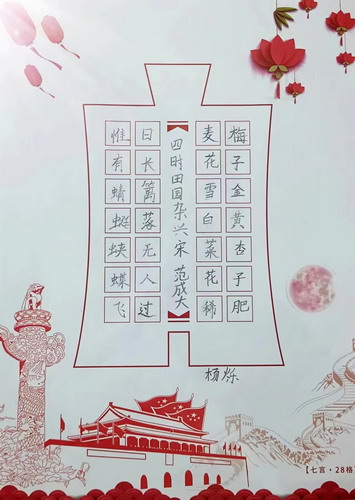 梅子金黄杏子肥
麦花雪白菜花稀
四时田园杂兴宋 范成大
日长篱落无人过
惟有蜻蜓蛱蝶飞
杨烁
【七言·28格